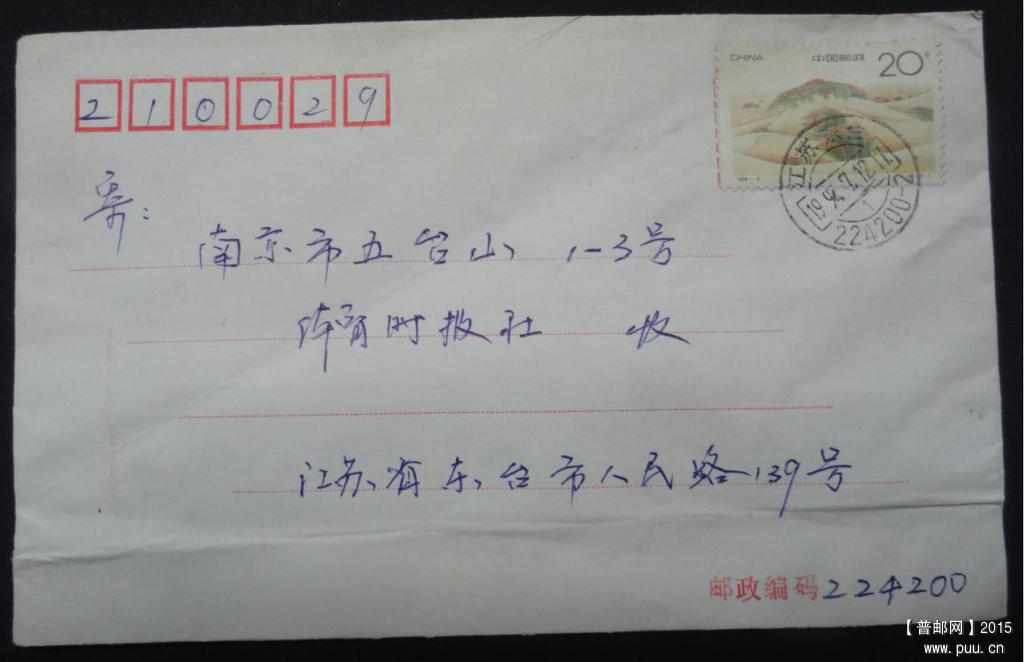 210029
CHINA 中国邮政 20分
江苏
1994.7.12.
1
224200-2
寄:
南京市五台山 1-3号
体育时报社 收
江苏省东台市人民路139号
邮政编码224200
【普邮网】2015
www.puu.cn